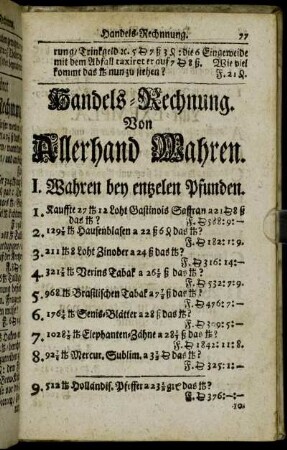 Handels-Rechnung. 77
rung/Trinkgeld ꝛc. 5 ₰ 7 ß 3 ₰: die 6 Eingeweide
mit dem Abfall taxiret er auf 7 ₰ 8 ß. Wie viel
kommt das ℔ nun zu stehen? F. 21 ₰.
Handels-Rechnung.
Von
Allerhand Wahren.
I. Wahren bey entzelen Pfunden.
1. Kauffte 27 ℔ 12 Loht Gastinois Saffran a 221 8 ß
das ℔? F. 588:9:−
2. 129½ ℔ Hausenblasen a 22 ß 6 ₰ das ℔?
F. 182:1:9.
3. 211 ℔ 8 Loht Zinober a 24 ß das ℔?
F. 316:14:−
4. 321½ ℔ Verins Tabak a 26½ ß das ℔?
F. 532:7:9.
5. 968 ℔ Brasilischen Tabak a 7½ ß das ℔?
F. 476:7:−
6. 176½ ℔ Senis-Blätter a 28 ß das ℔?
F. 309:5:−
7. 1028½ ℔ Elephanten-Zähne a 28½ ß das ℔?
F. 1842:11:8.
8. 92½ ℔ Mercur. Sublim. a 3½ das ℔?
F. 325:1:−
9. 512 ℔ Holländis. Pfeffer a 23½ das ℔?
F. 376:−:−
10.